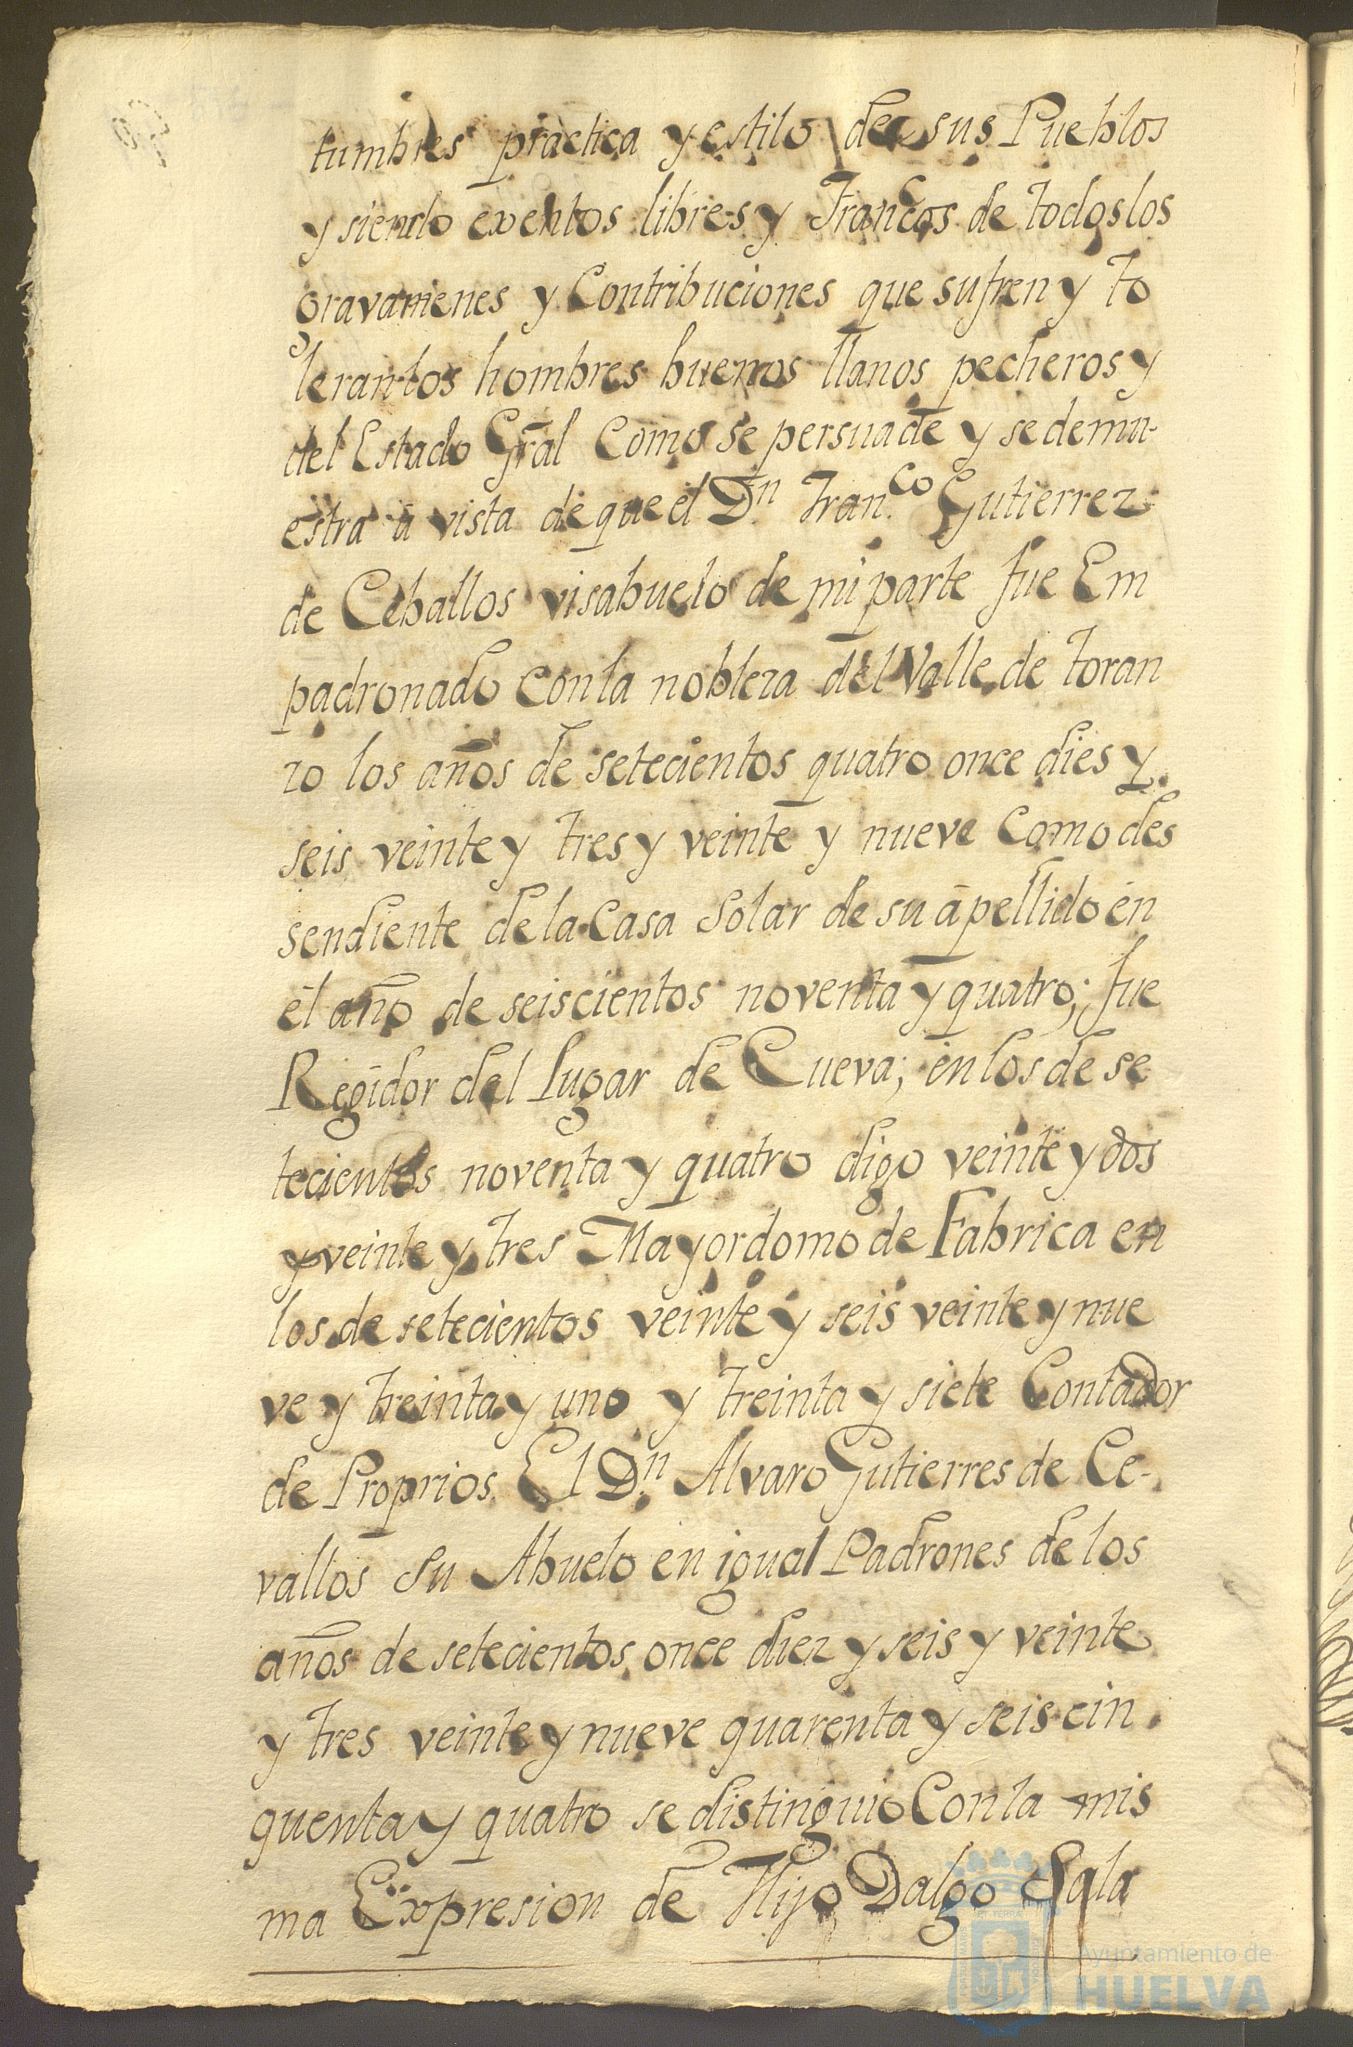 tumbres practica y estilo de sus Pueblos
y siendo exentos libres y Francos de todos los
gravamenes y Contribuciones que sufren y to
leran los hombres buenos llanos pecheros y
del Estado Gral Como se persuade y se demu-
estra a vista de que el Dn Fran.co Gutierrez
de Ceballos visabuelo de mi parte fue Em
padronado con la nobleza del Valle de Toran
zo los años de setecientos quatro once dies y
seis veinte y tres y veinte y nueve Como des
sendiente de la Casa Solar de su apellido en
el año de seiscientos noventa y quatro; fue
Regidor del Lugar de Cueva; en los de se
tecientos noventa y quatro digo veinte y dos
y veinte y tres Mayordomo de Fabrica en
los de setecientos veinte y seis veinte y nue
ve y treinta y uno y treinta y siete Contador
de Proprios. El Dn Alvaro Gutierres de Ce-
vallos Su Abuelo en igual Padrones de los
años de setecientos once diez y seis y veinte
y tres veinte y nueve quarenta y seis cin
quenta y quatro se distinguio Con la mis
ma Expresion de Hijo Dalgo
Ayuntamiento de
HUELVA